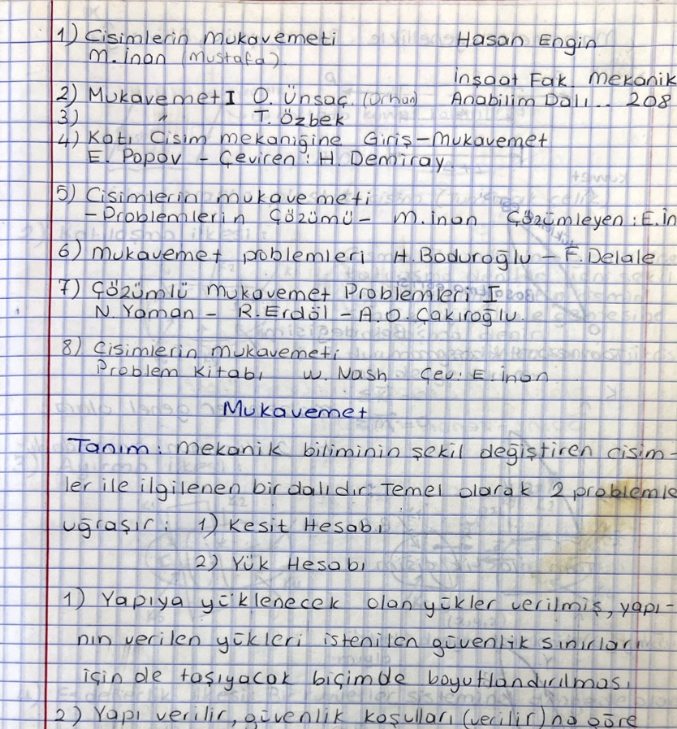 1) Cisimlerin Mukavemeti Hasan Engin
M. İnan (Mustafa)
İnşaat Fak. Mekanik
2) Mukavemet I O. Ünsaç. (Orhan) Anabilim Dalı.. 208
3) " T. Özbek
4) Katı Cisim mekaniğine Giriş-Mukavemet
E. Popov - Çeviren: H. Demiray
5) Cisimlerin mukavemeti
- Problemlerin Çözümü - M. İnan Çözümleyen: E. İn
6) Mukavemet poblemleri H. Boduroğlu - F. Delale
7) Çözümlü Mukavemet Problemleri I
N. Yaman - R. Erdöl - A.O. Çakıroğlu.
8) Cisimlerin mukavemeti
Problem Kitabı W. Nash Çev: E. İnan
Mukavemet
Tanım: Mekanik biliminin şekil değiştiren cisim-
ler ile ilgilenen bir dalıdır. Temel olarak 2 probleml
uğraşır: 1) Kesit Hesabı
2) Yük Hesabı
1) Yapıya yüklenecek olan yükler verilmiş, yapı-
nın verilen yükleri istenilen güvenlik sınırları
için de taşıyacak biçimde boyutlandırılması
2) Yapı verilir, güvenlik koşulları (verilir) na göre